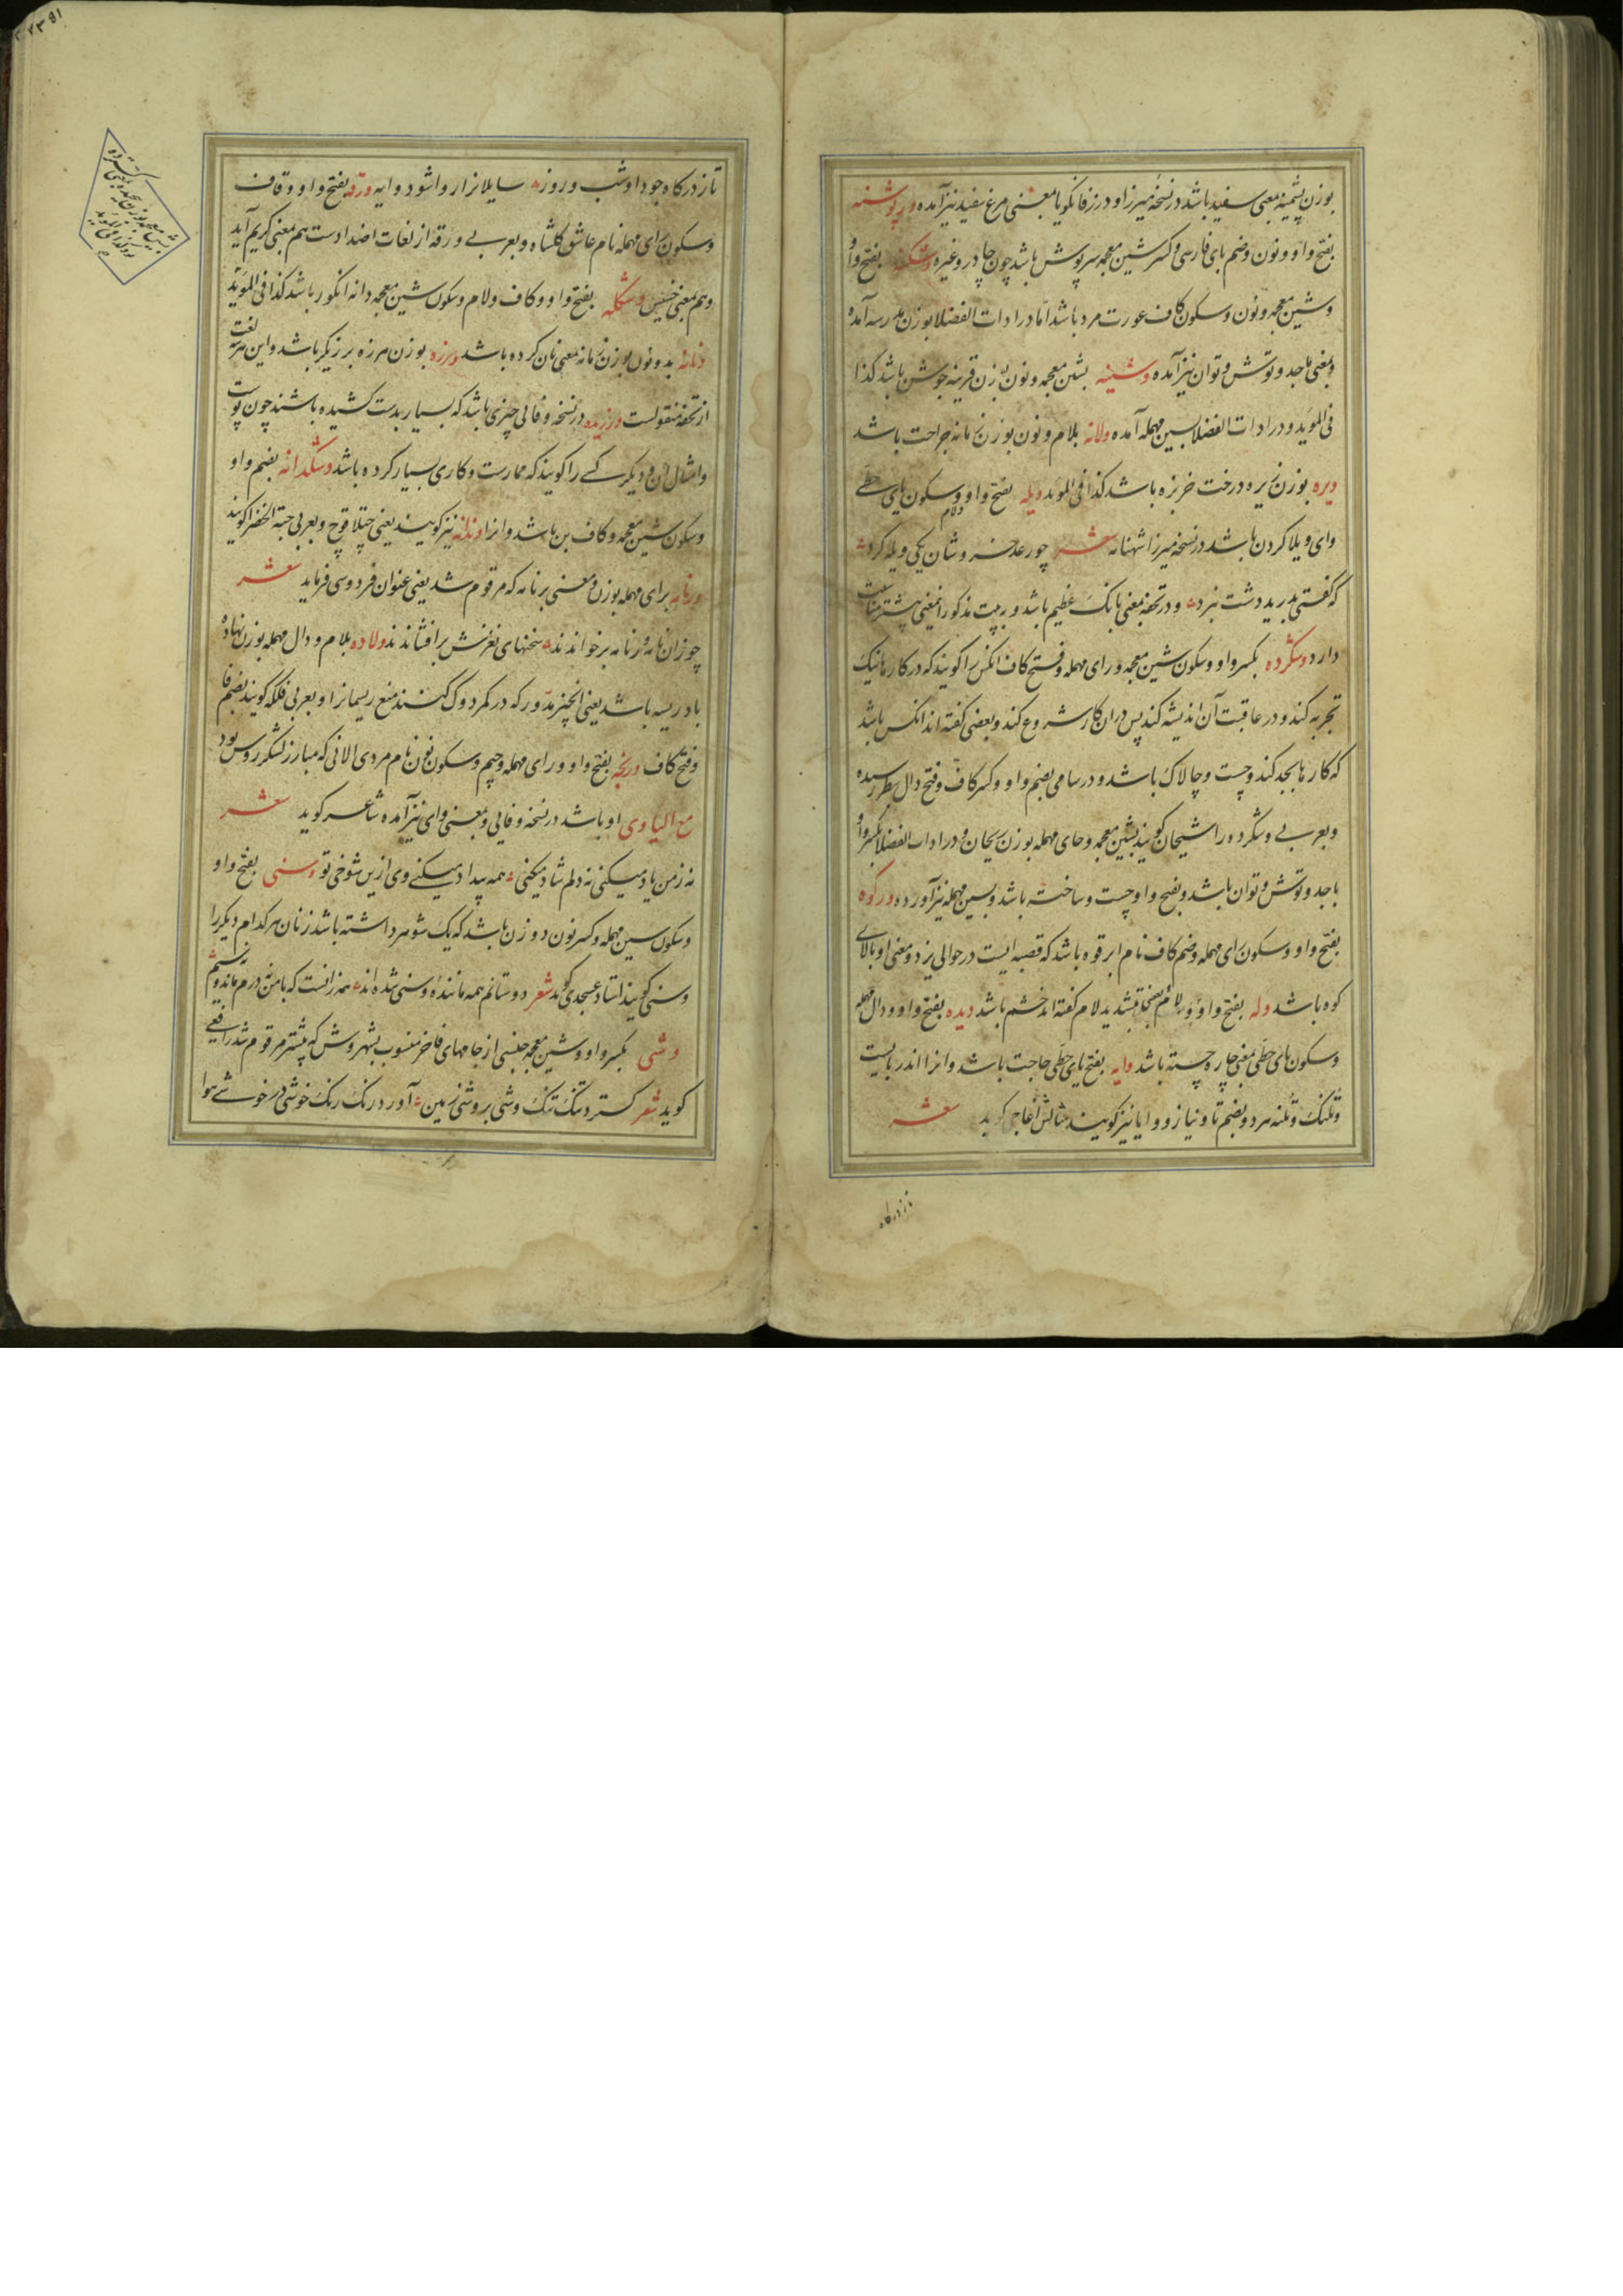 بوزن پشمینه بمعنی سفید باشد در نسخه میرزا و در زفانگویا بمعنی مرغ سفید نیز آمده
بفتح واو و نون و ضم بای فارسی و کسر شین معجمه سرپوش باشد چون چادر و غیره وشکنه بفتح واو
و شین معجمه و نون و سکون کاف عورت مرد باشد اما در ادات الفضلا بوزن مدرسه آمده
و بمعنی باجد و توش و توان نیز آمده وشنینه بشین معجمه و نون بوزن قرینه جوشن باشد کذا
فی المؤید و در ادات الفضلا بسین مهمله آمده ولانه بلام و نون بوزن زمانه جراحت باشد
ویره بوزن نیره درخت خربزه باشد کذا فی المؤید ویله بفتح واو و لام و سکون یای حطی
وای ویلا کردن باشد در نسخه میرزا شهنامه شعر چو رعد خروشان یکی ویله کرد
که گفتی بدرید دشت نبرد و در تحفه بمعنی بانگ عظیم باشد و بیت مذکور را بمعنی بیشتر مناسبت
دارد وشکرده بکسر واو و سکون شین معجمه و رای مهمله و فتح کاف آنکس را کویند که در کارها نیک
تجربه کند و در عاقبت آن اندیشه کند پس در ان کار شروع کند و بعضی گفته اند انکس باشد
که کارها بجد کند و چست و چالاک باشد و در سامی بضم واو و کسر کاف و فتح دال بنظر رسیده
و بعربی وشکرده را شیحان کویند بشین معجمه و حای مهمله بوزن ریحان و در ادات الفضلا بکسر واو
باجد و توش و توان باشد و بفتح واو چست و ساخته باشد و بسین مهمله نیز آورده ورکوه
بفتح واو و سکون رای مهمله و ضم کاف نام ابرقوه باشد که قصبه ایست در حوالی یزد و معنی او بالای
کوه باشد وله بفتح واو و لام بتشدید لام گفته اند خشم باشد ویده بفتح واو و دال مهمله
و سکون یای حطی بمعنی چاره جسته باشد وایه بفتح یای حطی حاجت باشد و انرا اندر بایست
و تلنگ و تلنه هر دو بضم تا و نیاز و وایا نیز کویند مثالش آغاجی کوید شعر
تاز درکاه
تا ز درکاه جود او شب و روز سایلانرا روا شود وایه ورقه بفتح واو و قاف
و سکون رای مهمله نام عاشق گلشاه و بعربی ورقه از لغات اضدادست هم بمعنی کریم آید
و هم بمعنی خسیس وشکله بفتح واو و کاف و لام و سکون شین معجمه دانه انکور باشد کذا فی المؤید
ونانه بدو نون بوزن زمانه بمعنی نان کرده باشد ورزه بوزن هرزه برزیکر باشد و این هر سه لغت
از تحفه منقولست ورزیده در نسخه وفائی چیزی باشد که بسیار بدست کشیده باشند چون پوست
و امثال آن و دیکر کسی را کویند که ممارست و کاری بسیار کرده باشد وشکدانه بضم واو
و سکون شین معجمه و کاف بن باشد و انرا ونذانه نیز کویند یعنی چتلاقوچ و بعربی حبة الخضرا کویند
ورنامه برای مهمله بوزن و معنی برنامه که مرقوم شد یعنی عنوان فردوسی فرماید شعر
چو زان نامه ورنامه برخواندند سخنهای نغزش برافشاندند ولاده بلام و دال مهمله بوزن نهاده
بادریسه باشد یعنی انچیز مدور که در کمر دوک کنند منع ریسمانرا و بعربی فلکه کویند بضم فا
و فتح کاف ورنجه بفتح واو و رای مهمله و جیم و سکون نون نام مردی الانی که مبارز لشکر روس بود
مع الیا وی او باشد در نسخه وفایی و بمعنی وای نیز آمده شاعر کوید شعر
نه ز من یاد میکنی نه دلم شاد میکنی همه بیداد میکنی وی ازین شوخی تو وسنی بفتح واو
و سکون سین مهمله و کسر نون دو زن باشد که یک شوهر داشته باشد زنان هر کدام دیکر را
وسنی کویند استاد عسجدی کوید شعر دوستانم همه مانندهٔ وسنی شده اند همه زانست که با من نه درم ماند و نه سیم
وشی بکسر واو و شین معجمه جنسی از جامهای فاخر منسوب بشهر وش که پیشتر مرقوم شد رافعی
کوید شعر کسترد تنک تنک وشی بر وشی زمین آورد رنک رنک خوشی در خوشی هوا